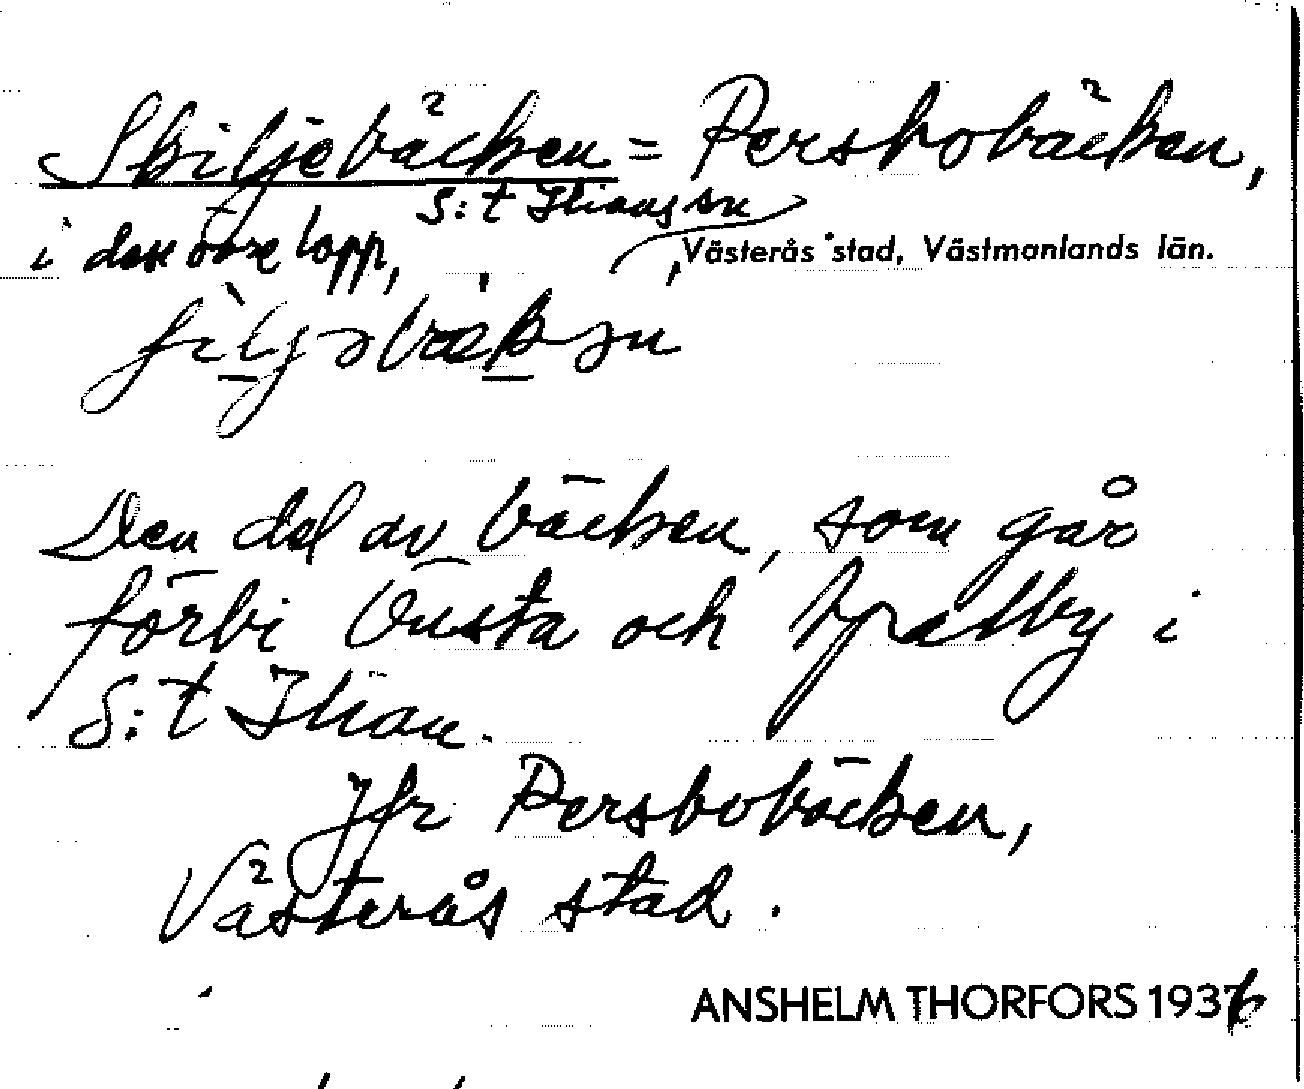 Skiljebäcken = Persbobäcken,
S:t Ilians sn
i dess övre lopp, Västerås stad, Västmanlands län.
Den del av bäcken, som går
förbi Önsta och Hälby i
S:t Ilian.
Jfr Persbobäcken,
Västerås stad.
ANSHELM THORFORS 1936